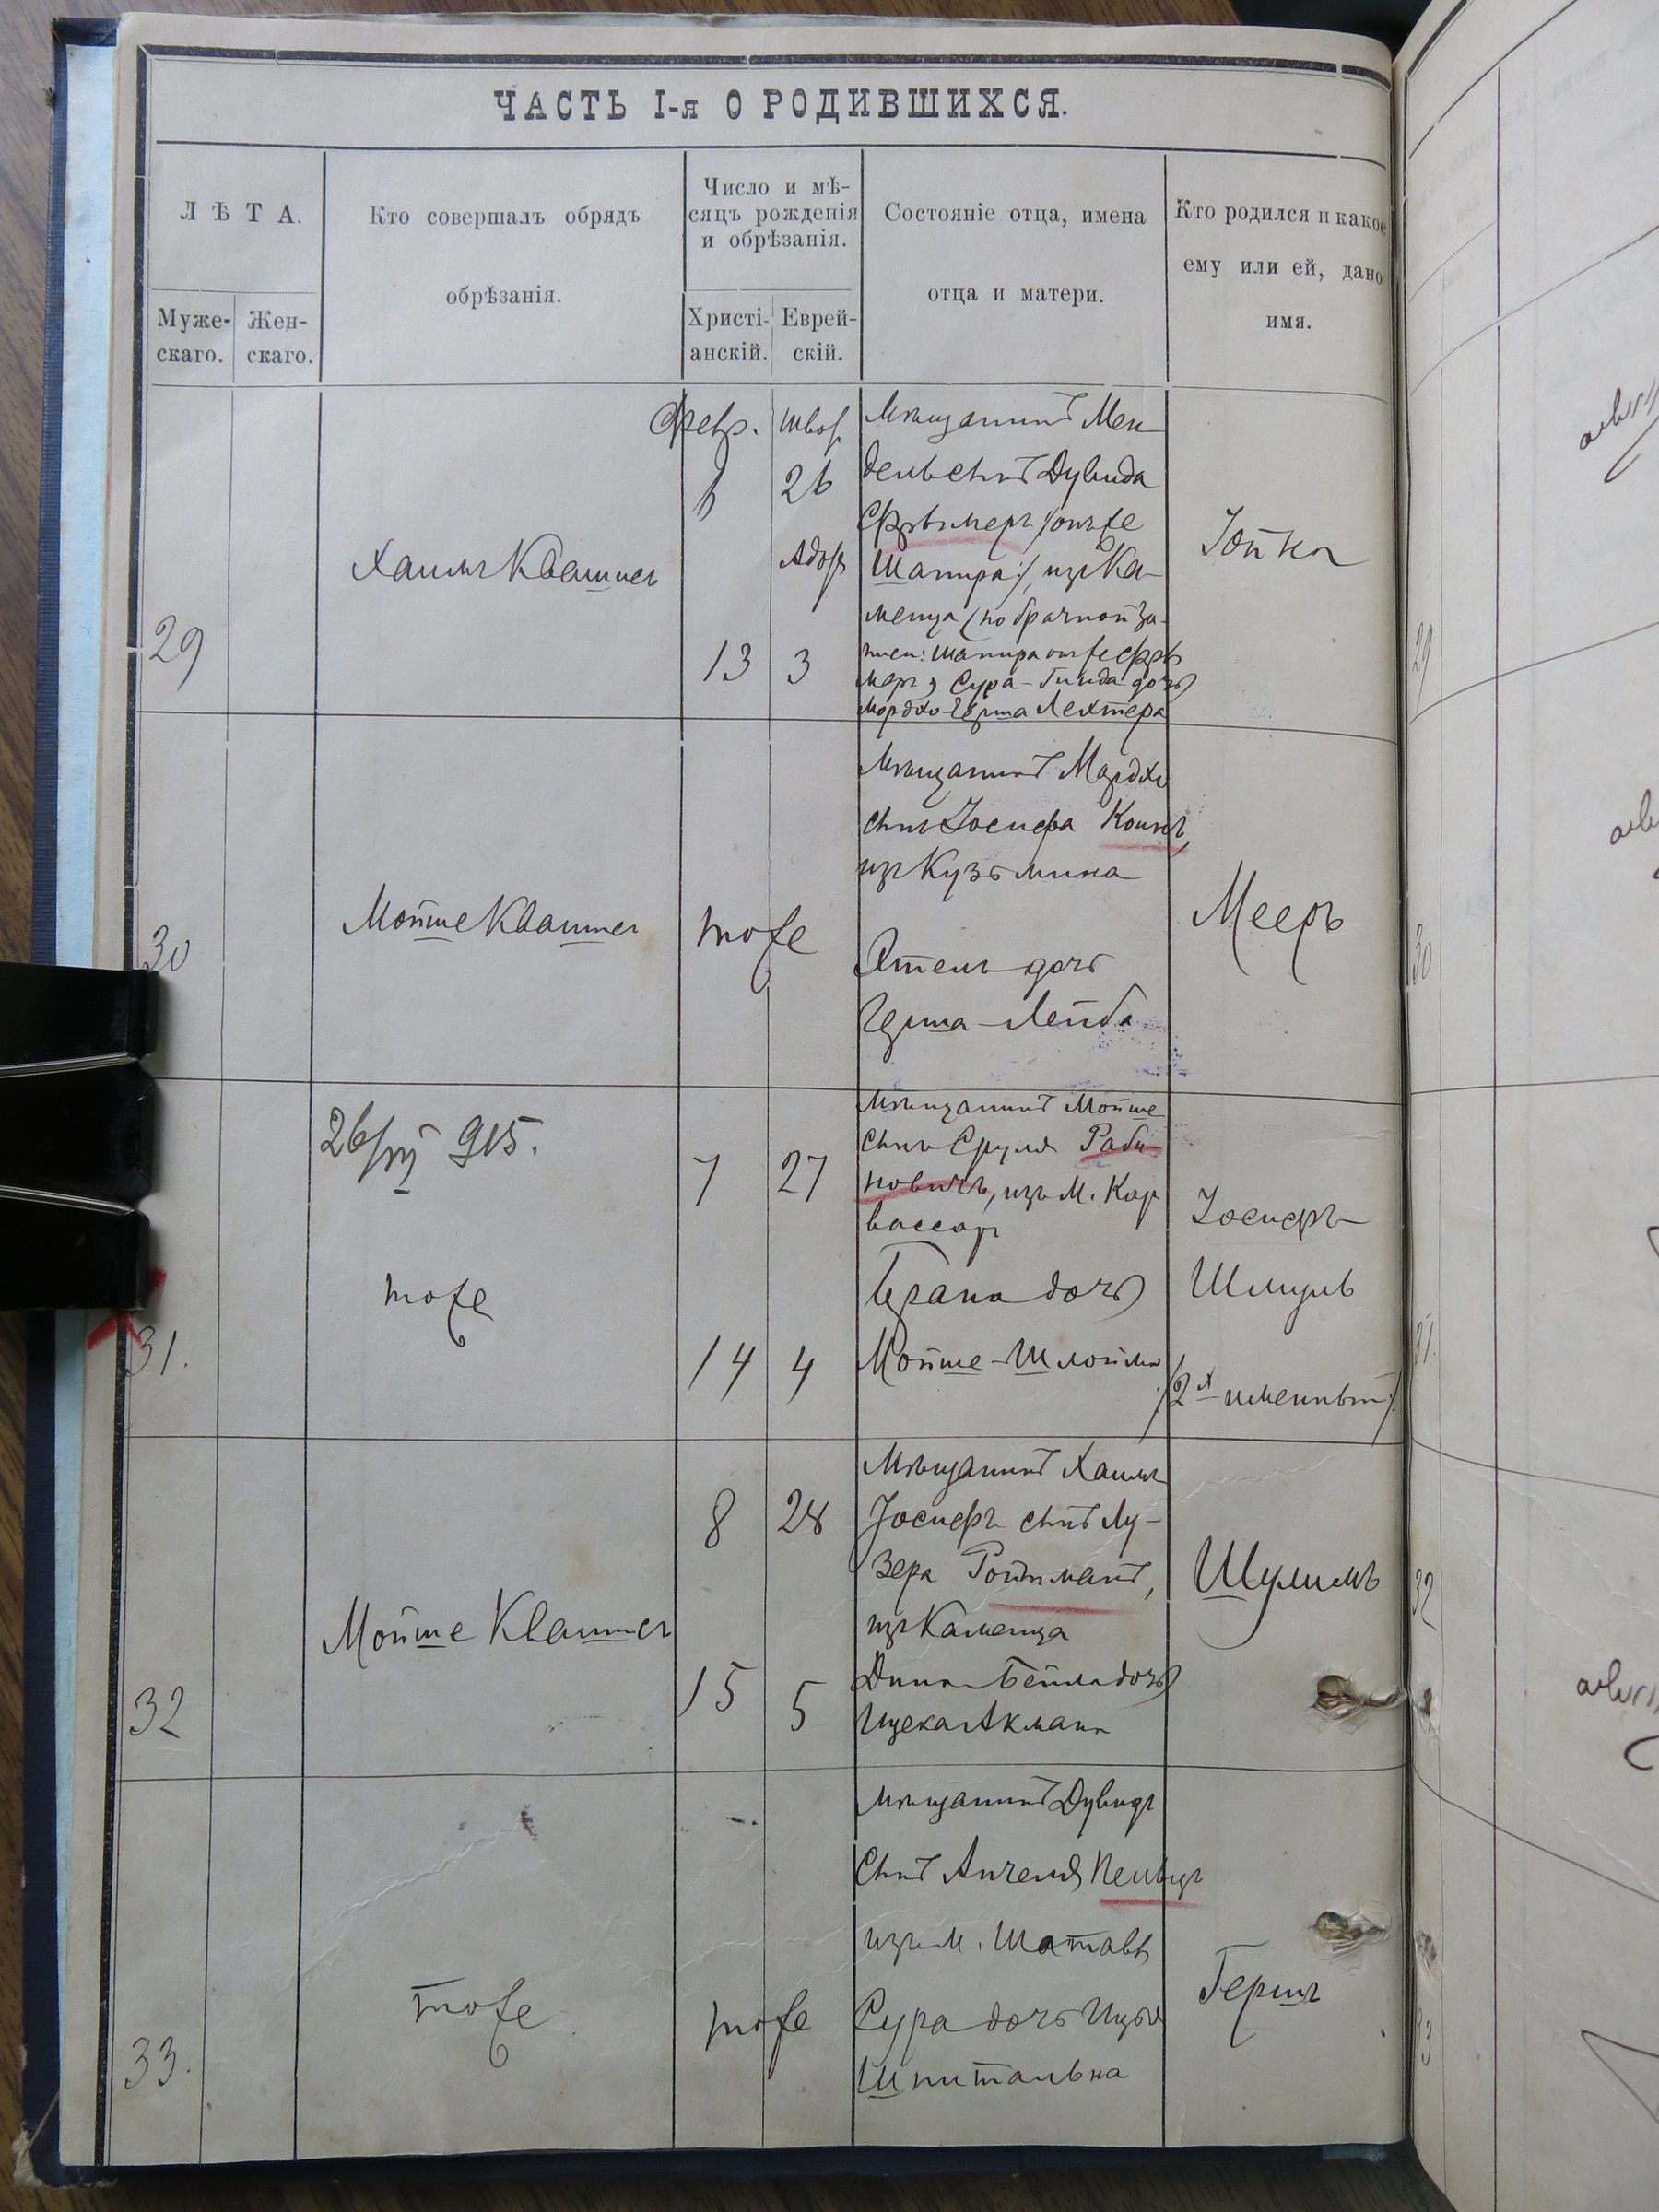 ЧАСТЬ I-я О РОДИВШИХСЯ.
ЛѢТА.
Муже-
скаго.
Жен-
скаго.
Кто совершалъ обрядъ
обрѣзанія.
Число и мѣ-
сяцъ рожденія
и обрѣзанія.
Христі-
анскій.
Еврей-
скій.
Состояніе отца, имена
отца и матери.
Кто родился и какое
ему или ей, дано
имя.
29
Хаимъ Квашнеръ
Февр.
6
13
Шват
26
Адор
3
Мѣщанинъ Мен
дель сынъ Дувида
онъ же
Шапира/, изъ Ка-
менца (по брачной за-
писи: Шапира онъ же
Сура-Гинда дочь
Мордко-Герша Лехтера
30
Мойше Квашнеръ
тоже
Мѣщанинъ Мордко
сынъ Іосифа
изъ Кузьмина
Этель дочь
Герша-Лейба
Мееръ
31.
26/VI 915.
тоже
7
14
27
4
Мѣщанинъ Мойше
сынъ Сруля Раби
новичъ, изъ М. Кар
вассар
дочь
Мойше-Шлойма
Іосифъ-
Шмуль
/2х именный/
32
Мойше Квашнеръ
8
15
28
5
Мѣщанинъ Хаимъ
Іосифъ сынъ Лу-
зера Ройтманъ,
изъ Каменца
Дина-Бейла дочь
Ицека Акмана
Шулимъ
33.
тоже
тоже
Мѣщанинъ Дувидъ
сынъ Анчеля
изъ М. Шатавы
Сура дочь
Шпитальна
Гершъ
29
30
31.
32
33